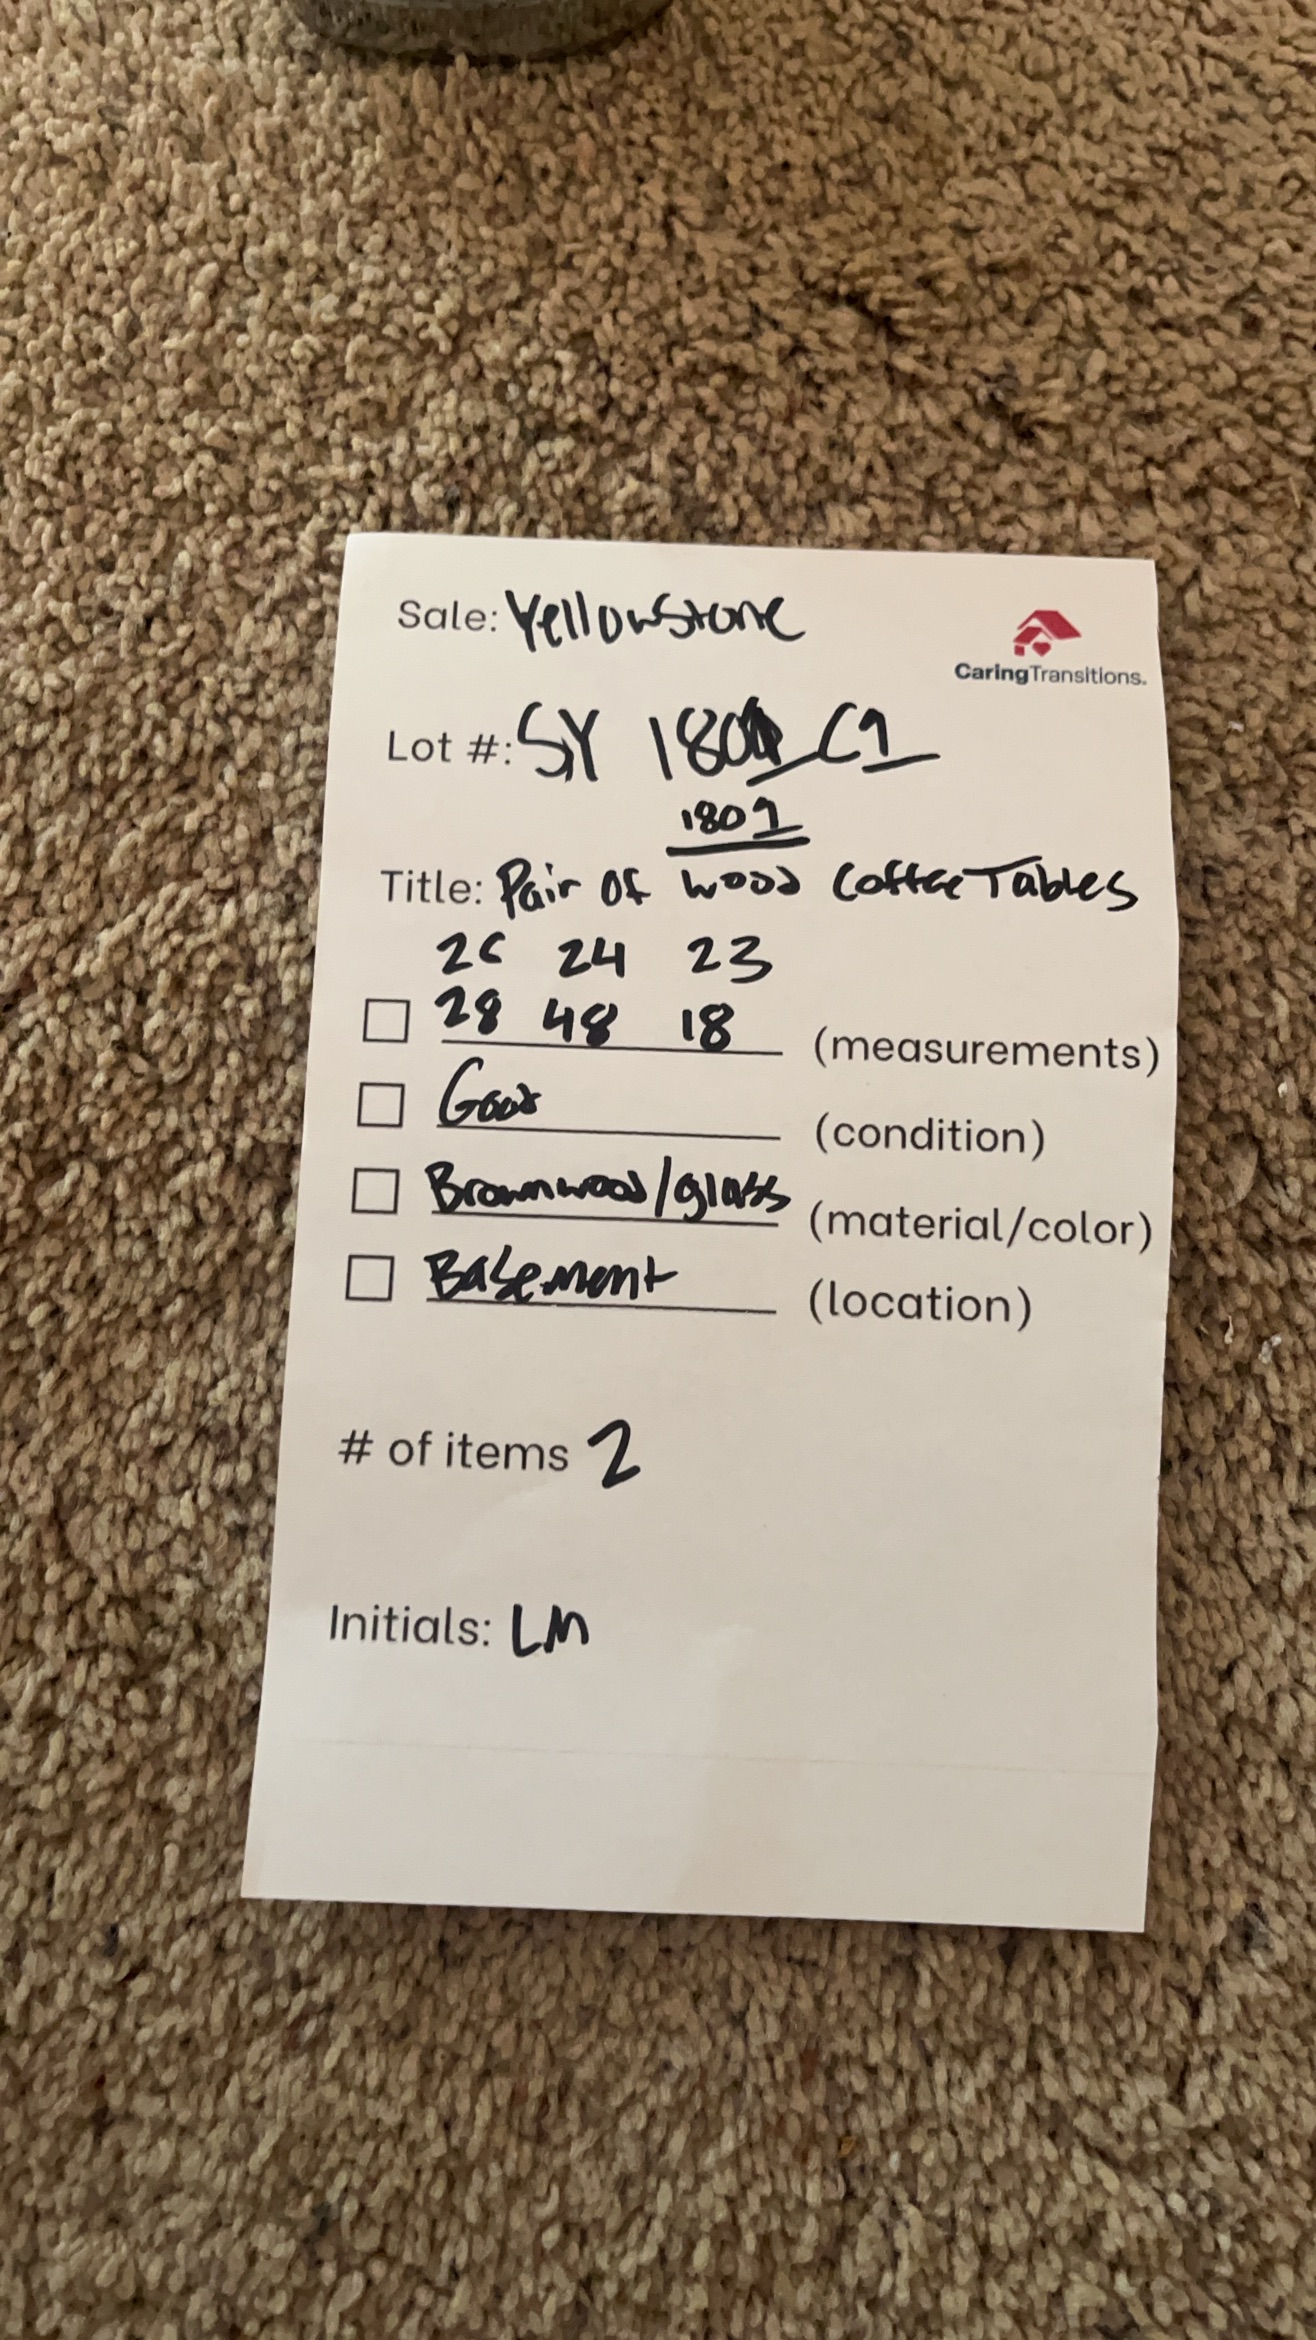 Sale: Yellowstone
CaringTransitions.
Lot #: SY 1801 C1
1801
Title: Pair of wood Coffee Tables
26 24 23
28 48 18 (measurements)
Good (condition)
Brown wood/glass (material/color)
Basement (location)
# of items 2
Initials: LM